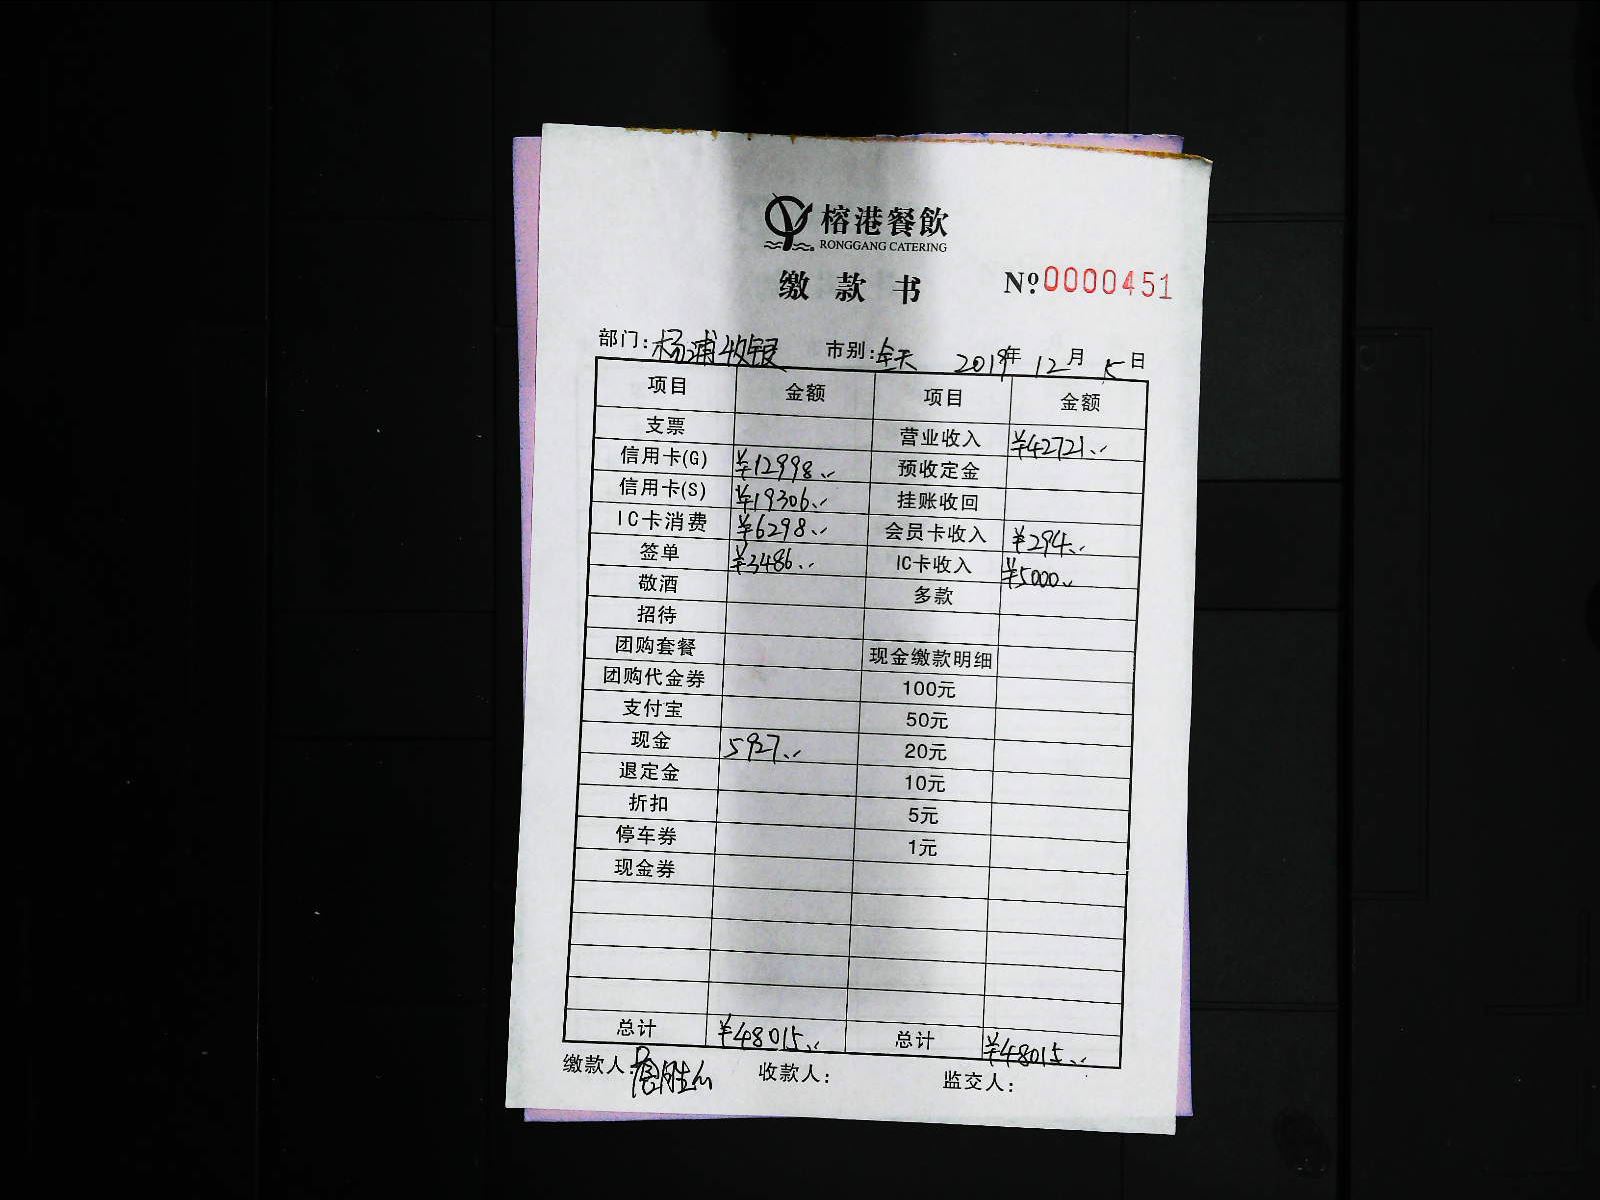 榕港餐飲
RONGGANG CATERING
缴款书 №0000451
部门:杨浦收银 市别:全天 2019年12月5日
项目 金额 项目 金额
支票 营业收入 ¥42721.-
信用卡(G) ¥12998.- 预收定金
信用卡(S) ¥19306.- 挂账收回
IC卡消费 ¥6298.- 会员卡收入 ¥294.-
签单 ¥3486.- IC卡收入 ¥5000.-
敬酒 多款
招待
团购套餐 现金缴款明细
团购代金券 100元
支付宝 50元
现金 5927.- 20元
退定金 10元
折扣 5元
停车券 1元
现金券
总计 ¥48015.- 总计 ¥48015.-
缴款人: 收款人: 监交人: